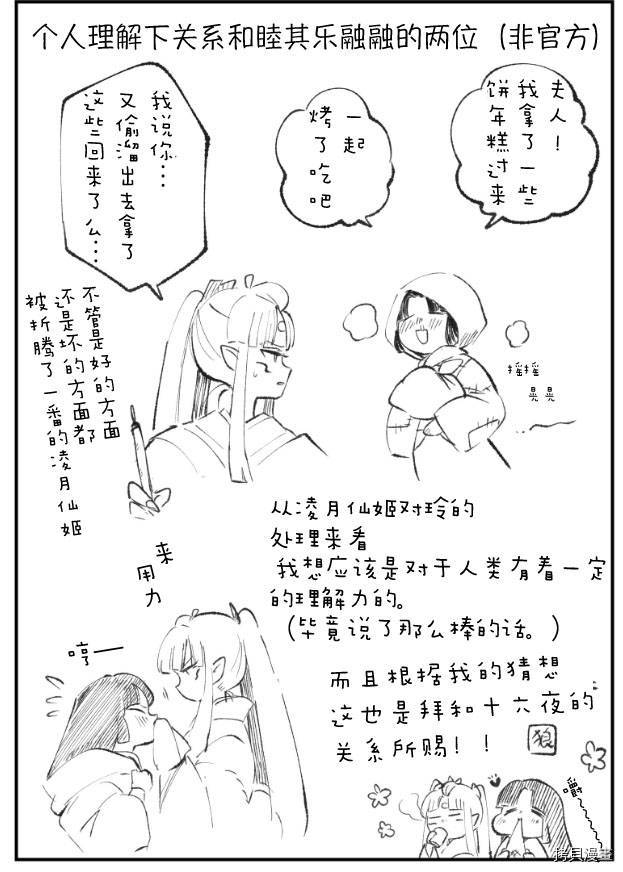 个人理解下关系和睦其乐融融的两位（非官方）
夫人！
我拿了一些
饼年糕过来
一起
烤了吃吧
我说你…
又偷溜出去拿了
这些回来了么…
摇摇
晃晃
不管是好的方面
还是坏的方面都
被折腾了一番的凌月仙姬
从凌月仙姬对玲的
处理来看
我想应该是对于人类有着一定
的理解力的。
（毕竟说了那么棒的话。）
来
用力
哼——
而且根据我的猜想
这也是拜和十六夜的
关系所赐！！
狼
嚼
拷贝漫画